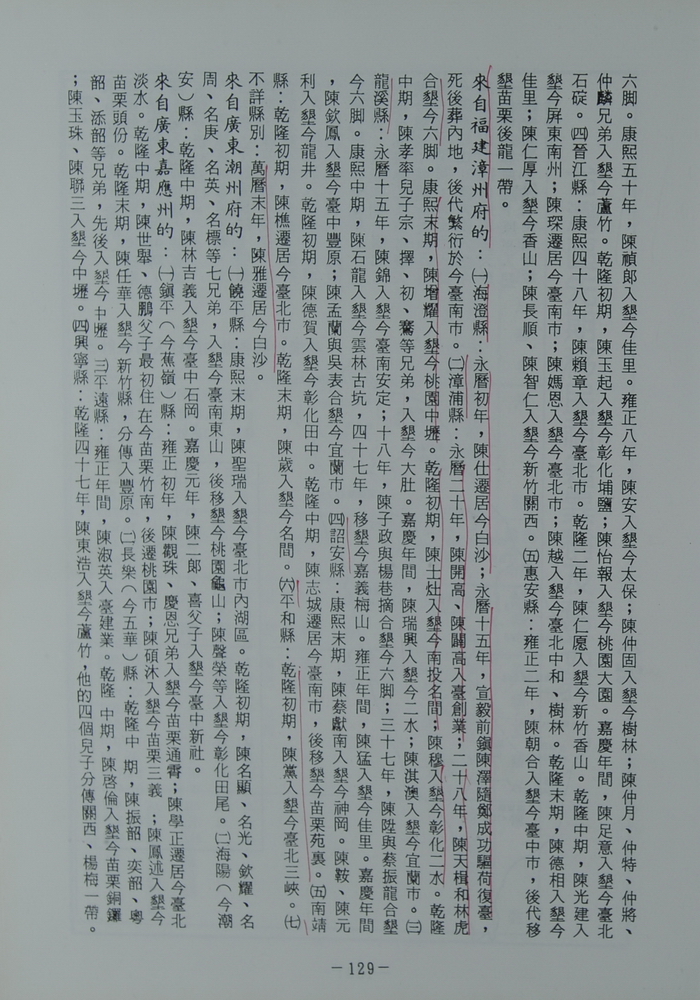 六脚。康熙五十年，陳禎郎入墾今佳里。雍正八年，陳安入墾今太保；陳仲固入墾今樹林；陳仲月、仲特、仲將、
仲麟兄弟入墾今蘆竹。乾隆初期，陳玉起入墾今彰化埔鹽；陳怡報入墾今桃園大園。嘉慶年間，陳足意入墾今臺北
石碇。㈣晉江縣：康熙四十八年，陳賴章入墾今臺北市。乾隆二年，陳仁愿入墾今新竹香山。乾隆中期，陳光建入
墾今屏東南州；陳琛遷居今臺南市；陳媽恩入墾今臺北市；陳越入墾今臺北中和、樹林。乾隆末期，陳德相入墾今
佳里；陳仁厚入墾今香山；陳長順、陳智仁入墾今新竹關西。㈤惠安縣：雍正二年，陳朝合入墾今臺中市，後代移
墾苗栗後龍一帶。
來自福建漳州府的：㈠海澄縣：永曆初年，陳仕遷居今白沙；永曆十五年，宣毅前鎮陳澤隨鄭成功驅荷復臺，
死後葬內地，後代繁衍於今臺南市。㈡漳浦縣：永曆二十年，陳開高、陳闢高入臺創業；二十八年，陳天楫和林虎
合墾今六脚。康熙末期，陳增耀入墾今桃園中壢。乾隆初期，陳士灶入墾今南投名間；陳穆入墾今彰化二水。乾隆
中期，陳孝率兒子宗、擇、初、騫等兄弟，入墾今大肚。嘉慶年間，陳瑞興入墾今二水；陳淇澳入墾今宜蘭市。㈢
龍溪縣：永曆十五年，陳錦入墾今臺南安定；十八年，陳子政與楊巷摘合墾今六脚；三十七年，陳陞與蔡振龍合墾
今六脚。康熙中期，陳石龍入墾今雲林古坑，四十七年，移墾今嘉義梅山。雍正年間，陳猛入墾今佳里。嘉慶年間
，陳欽鳳入墾今臺中豐原；陳孟蘭與吳表合墾今宜蘭市。㈣詔安縣：康熙末期，陳蔡獻南入墾今神岡。陳鞍、陳元
利入墾今龍井。乾隆初期，陳德賀入墾今彰化田中。乾隆中期，陳志城遷居今臺南市，後移墾今苗栗苑裏。㈤南靖
縣：乾隆初期，陳樵遷居今臺北市。乾隆末期，陳歲入墾今名間。㈥平和縣：乾隆初期，陳黨入墾今臺北三峽。㈦
不詳縣別：萬曆末年，陳雅遷居今白沙。
來自廣東潮州府的：㈠饒平縣：康熙末期，陳聖瑞入墾今臺北市內湖區。乾隆初期，陳名顯、名光、欽耀、名
周、名庚、名英、名標等七兄弟，入墾今臺南東山，後移墾今桃園龜山；陳聲榮等入墾今彰化田尾。㈡海陽（今潮
安）縣：乾隆中期，陳林吉義入墾今臺中石岡。嘉慶元年，陳二郎、喜父子入墾今臺中新社。
來自廣東嘉應州的：㈠鎮平（今蕉嶺）縣：雍正初年，陳觀珠、慶恩兄弟入墾今苗栗通霄；陳學正遷居今臺北
淡水。乾隆中期，陳世擧、德鵬父子最初住在今苗栗竹南，後遷桃園市；陳碩沐入墾今苗栗三義；陳鳳述入墾今
苗栗頭份。乾隆末期，陳任華入墾今新竹縣，分傳入豐原。㈡長樂（今五華）縣：乾隆中　期，陳振韶、奕韶、粵
韶、添韶等兄弟，先後入墾今中壢。㈢平遠縣：雍正年間，陳淑英入臺建業。乾隆中期，陳啓倫入墾今苗栗銅鑼
；陳玉珠、陳聯三入墾今中壢。㈣興寧縣：乾隆四十七年，陳東浩入墾今蘆竹，他的四個兒子分傳關西、楊梅一帶。
－129－